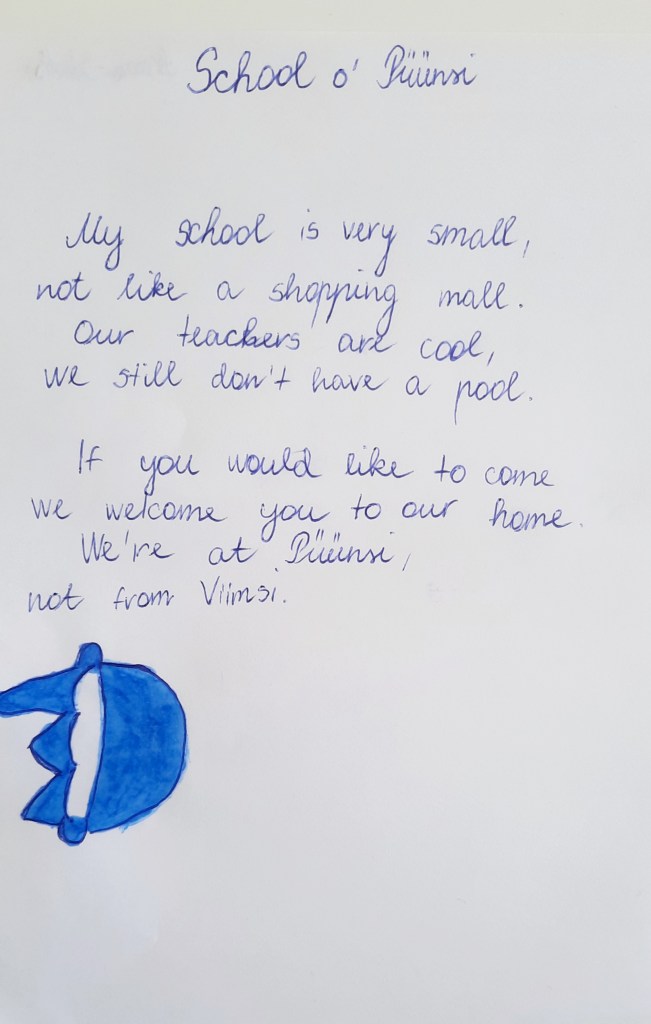 School o' Püünsi
My school is very small,
not like a shopping mall.
Our teachers are cool,
we still don't have a pool.
If you would like to come
we welcome you to our home.
We're at Püünsi,
not from Viimsi.